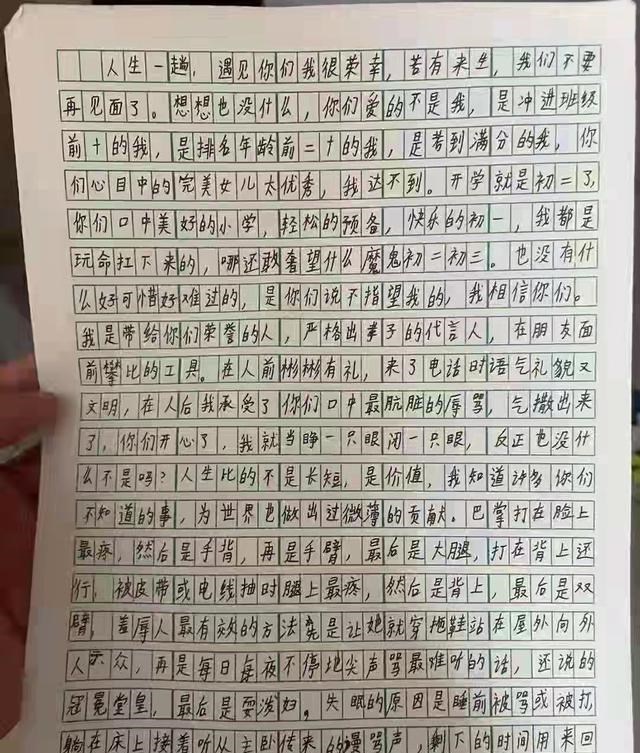 人生一趟，遇见你们我很荣幸，若有来生，我们不要
再见面了。想想也没什么，你们爱的不是我，是冲进班级
前十的我，是排名年龄前二十的我，是考到满分的我，你
们心目中的完美女儿太优秀，我达不到。开学就是初二了，
你们口中美好的小学，轻松的预备，快乐的初一，我都是
玩命扛下来的，哪还敢奢望什么魔鬼初二初三。也没有什
么好可惜好难过的，是你们说不指望我的，我相信你们。
我是带给你们荣誉的人，严格出孝子的代言人，在朋友面
前攀比的工具。在人前彬彬有礼，来了电话时语气礼貌又
文明，在人后我承受了你们口中最肮脏的辱骂，气撒出来
了，你们开心了，我就当睁一只眼闭一只眼，反正也没什
么不是吗？人生比的不是长短，是价值，我知道许多你们
不知道的事，为世界也做出过微薄的贡献。巴掌打在脸上
最疼，然后是手背，再是手臂，最后是大腿，打在背上还
行；被皮带或电线抽时腿上最疼，然后是背上，最后是双
臂；羞辱人最有效的方法竟是让她就穿拖鞋站在屋外向外
人示众，再是每日每夜不停地尖声骂最难听的话，还说的
冠冕堂皇，最后是耍泼妇。失眠的原因是睡前被骂或被打，
躺在床上接着听从主卧传来的谩骂声，剩下的时间用来回